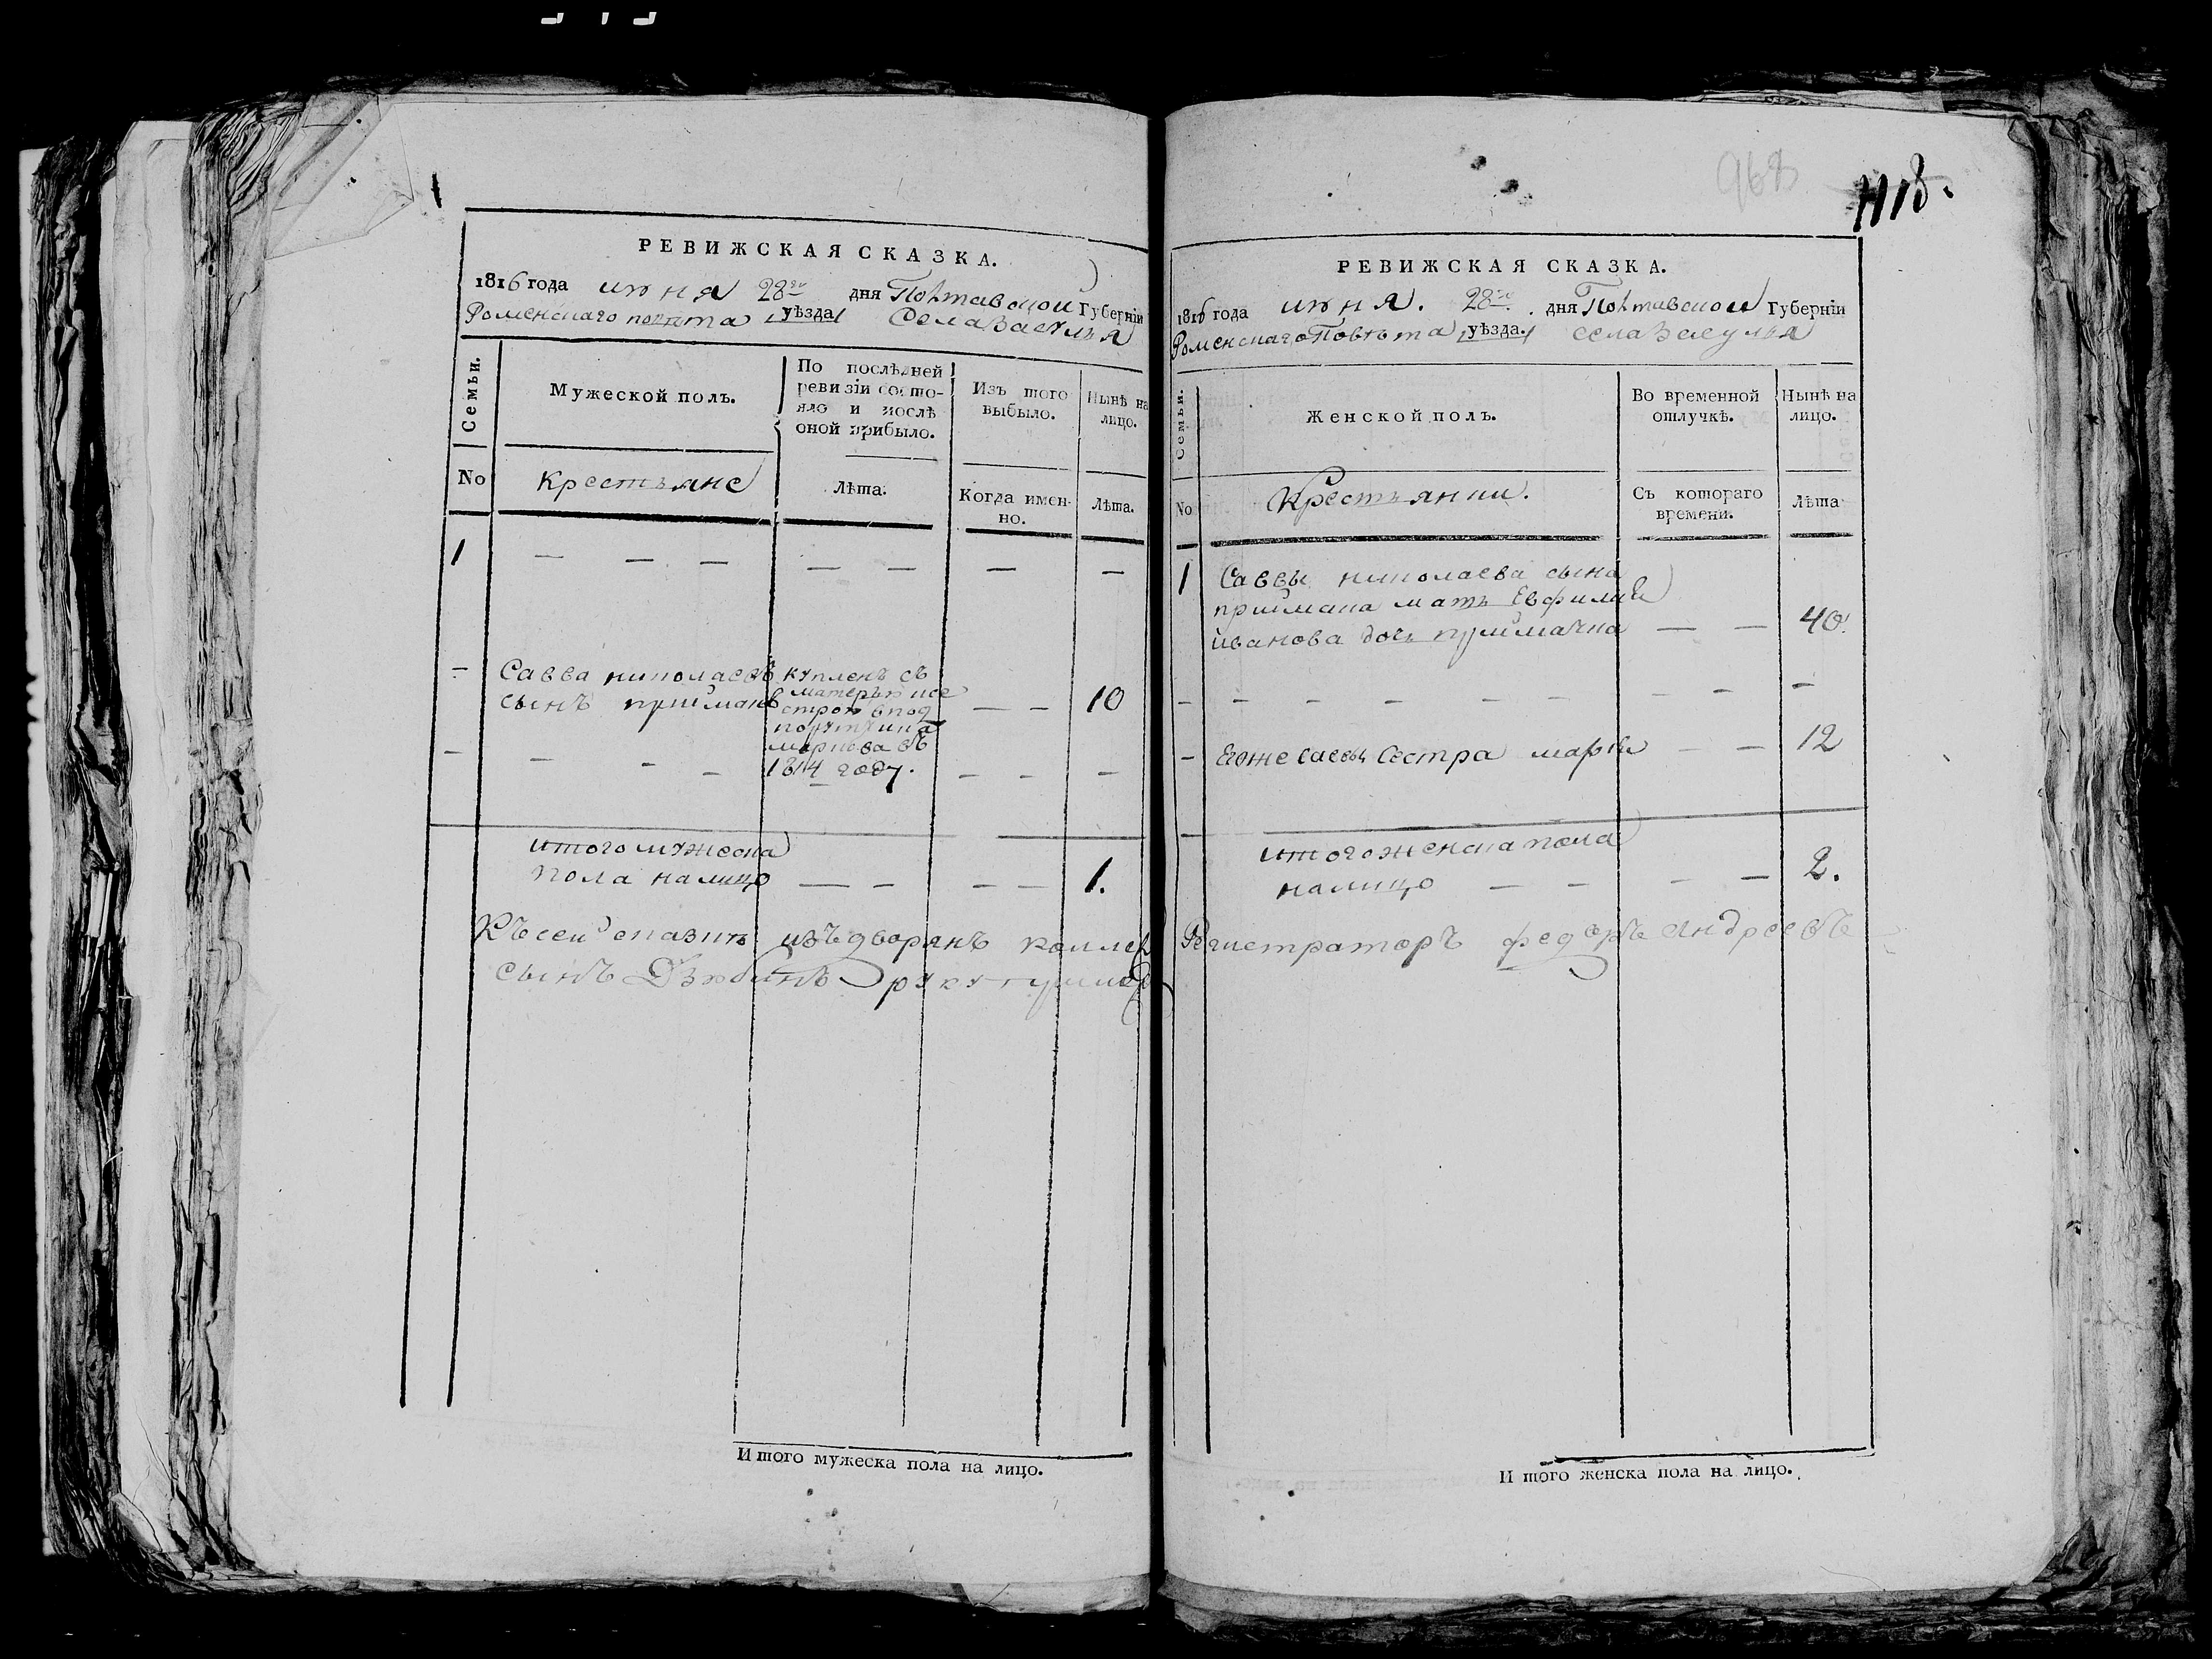 РЕВИЖСКАЯ СКАЗКА.
1816 года июня 28го дня Полтавской Губерніи
Роменскаго повѣта уѣзда Села Засулья
Семьи.
Мужеской полъ.
По послѣдней ревизіи состояло и послѣ оной прибыло.
Изъ того выбыло.
Нынѣ на лицо.
No
Крестьяне
Лѣта.
Когда именно.
Лѣта.
1 — — — — — — —
— Савва николаевъ
сынъ прийманъ
купленъ съ
матерью и се
строю в под
порутчика
маркова въ
1814 году.
— — 10
— — — — — — —
итого мужеска
пола налицо — — — — 1.
Къ сей сказки изъ дворянъ коллеж
сынъ
И того мужеска пола на лицо.
968
1118.
РЕВИЖСКАЯ СКАЗКА.
1816 года июня. 28го дня Полтавской Губерніи
Роменскаго Повѣта уѣзда. села Засулья
Семьи.
Женской полъ.
Во временной отлучкѣ.
Нынѣ на лицо.
No
Крестьянки.
Съ котораго времени.
Лѣта
1 Саввы николаева сына
приймана мать Евфимия
иванова дочь приймачка — — 40.
— — — — — — — —
— Егоже саввы Сестра мария — — 12
итого женска пола
налицо — — — — 2.
Регистраторъ федоръ Андреевъ
И того женска пола на лицо.